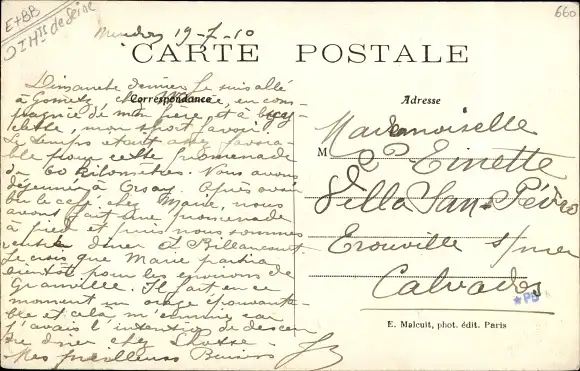 E+BB
660
19-7-10
CARTE POSTALE
Correspondance
Adresse
Dimanche dernier Je suis allé
à Gometz chez, en com-
pagnie de mon frère, et à bicy-
clette, mon sport favori
Le temps était assez favora-
ble pour cette promenade
de 60 kilomètres. Nous avons
déjeuner à Orsay. Après avoir
bu le café chez Marie, nous
avons fait une promenade
à pied et puis nous sommes
rentrés diner à Billancourt.
Je crois que Marie partira
bientôt pour les environs de
Granville. Il fait en ce
moment un orage épouvanta-
ble et cela m'ennuie car
j'avais l'intention de descen
dre diner chez
Mes meilleurs Baisers
Mademoiselle
M
Einette
Villa San-Pédro
Erouville s/mer
Calvados
*PB
E. Malcuit, phot. édit. Paris